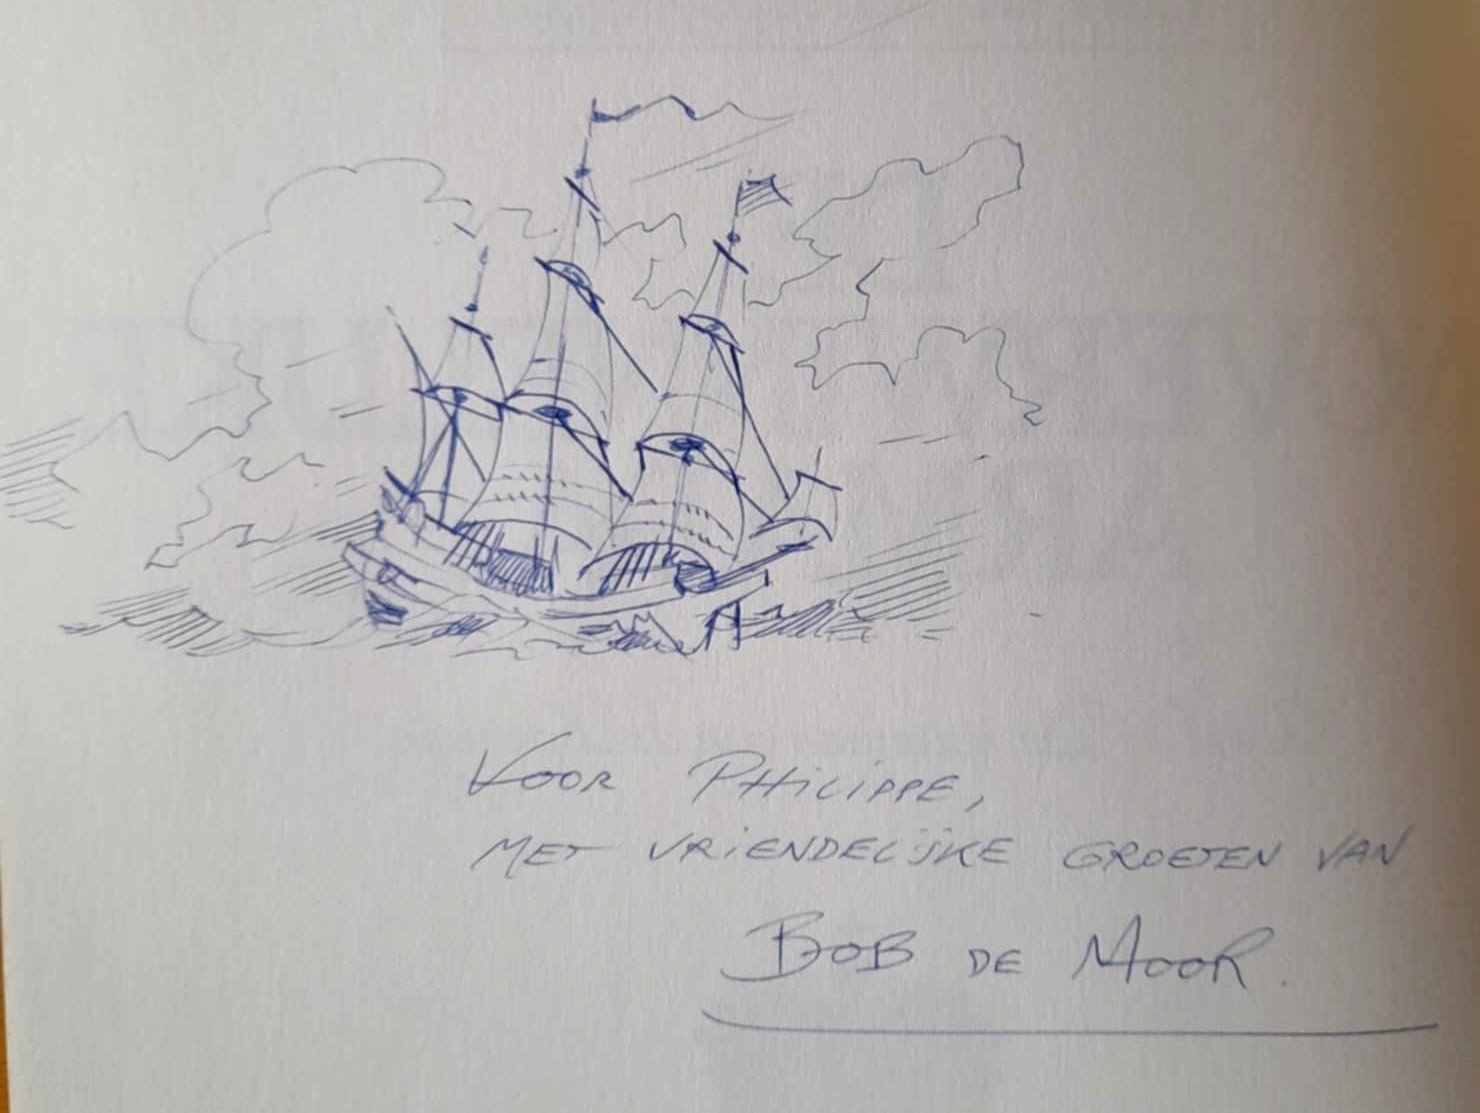 VOOR PHILIPPE,
MET VRIENDELIJKE GROETEN VAN
BOB DE MOOR.